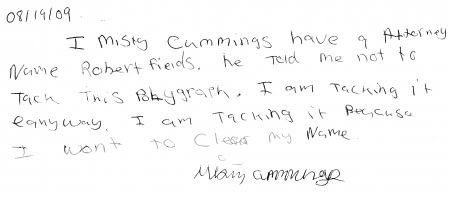 08/19/09
I Misty Cummings have a Atterney
Name Robert fields. he Told me not to
Tack This Blygraph. I am Tacking it
eanyway. I am Tacking it Because
I wont to Clear my Name.
Misty Cummings